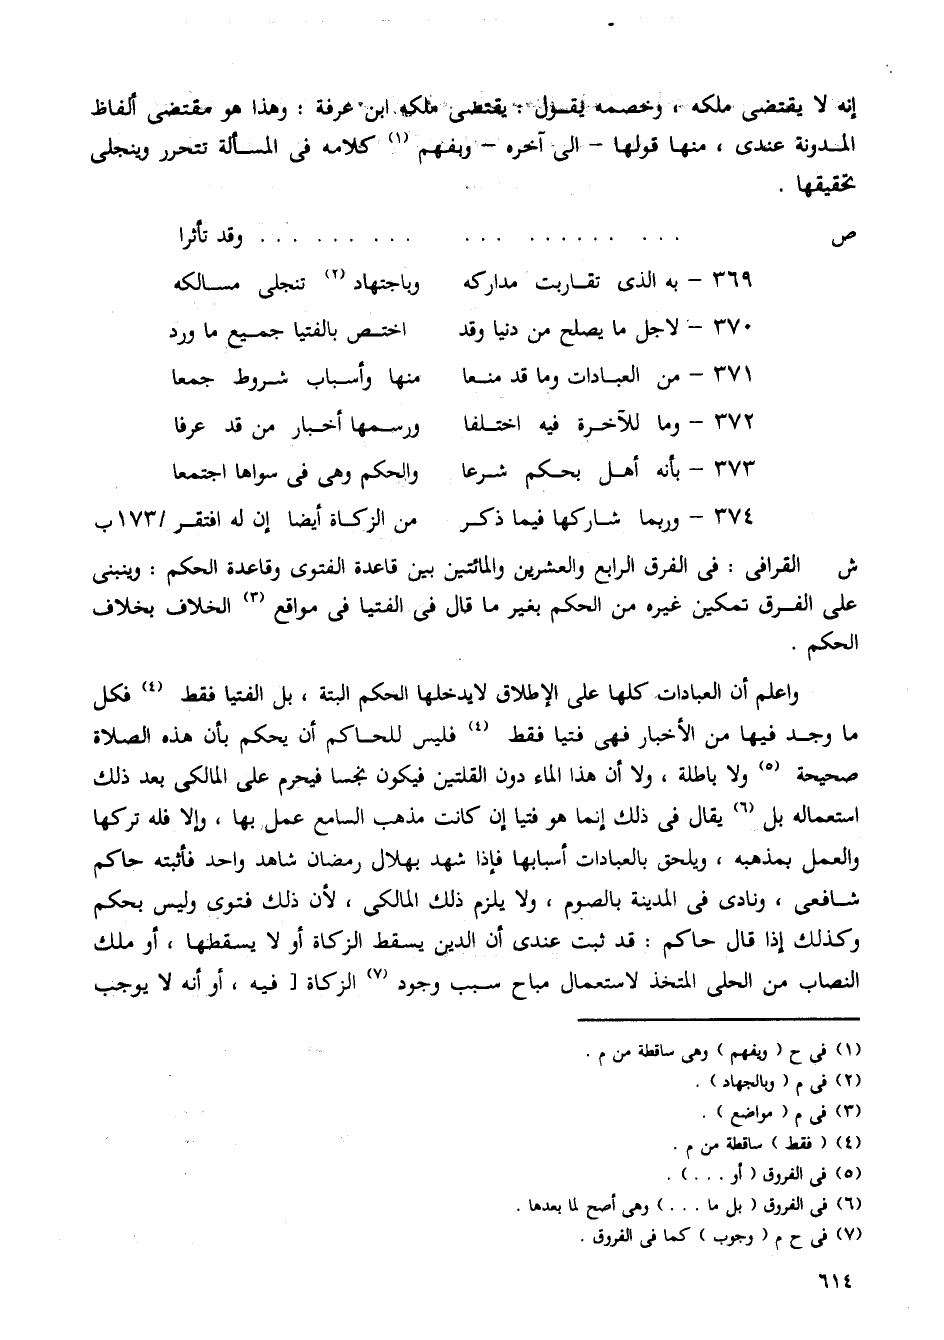 إنه لا يقتضى ملكه ، وخصمه يقـول : يقتضى ملكه ابن عرفة : وهذا هو مقتضى ألفاظ
المـدونة عندى ، منهـا قولهـا – الى آخره – وبفهم (١) كلامه فى المسألة تتحرر وينجلى
تحقيقها .
ص ... ......... ... ......... وقد تأثرا
٣٦٩ – به الذى تقـاربت مداركه وباجتهاد (٢) تنجلى مسـالكه
٣٧٠ – لاجل ما يصلح من دنيا وقد اختـص بالفتيا جميـع ما ورد
٣٧١ – من العبـادات وما قد منـعا منها وأسبـاب شـروط جمعا
٣٧٢ – وما للآخـرة فيه اختـلفا ورسـمها أخبـار من قد عرفا
٣٧٣ – بأنه أهـل بحكـم شـرعا والحكم وهى فى سواها اجتمعا
٣٧٤ – وربما شاركها فيما ذكـر من الزكـاة أيضا إن له افتقـر /١٧٣ب
ش القرافى : فى الفرق الرابع والعشرين والمائتين بين قاعدة الفتوى وقاعدة الحكم : وينبنى
على الفـرق تمكين غيره من الحكم بغير ما قال فى الفتيا فى مواقع (٣) الخلاف بخلاف
الحكم .
واعلم أن العبادات كلها على الإطلاق لايدخلها الحكم البتة ، بل الفتيا فقط (٤) فكل
ما وجـد فيها من الأخبار فهى فتيا فقط (٤) فليس للحـاكم أن يحكم بأن هذه الصلاة
صحيحة (٥) ولا باطلة ، ولا أن هذا الماء دون القلتين فيكون نجسا فيحرم على المالكى بعد ذلك
استعماله بل (٦) يقال فى ذلك إنما هو فتيا إن كانت مذهب السامع عمل بها ، وإلا فله تركها
والعمل بمذهبه ، ويلحق بالعبادات أسبابها فإذا شهد بهلال رمضان شاهد واحد فأثبته حاكم
شـافعى ، ونادى فى المدينة بالصوم ، ولا يلزم ذلك المالكى ، لأن ذلك فتوى وليس بحكم
وكذلك إذا قال حاكم : قد ثبت عندى أن الدين يسقط الزكاة أو لا يسقطها ، أو ملك
النصاب من الحلى المتخذ لاستعمال مباح سبب وجود (٧) الزكاة [ فيه ، أو أنه لا يوجب
(١) فى ح ( ويفهم ) وهى ساقطة من م .
(٢) فى م ( وبالجهاد ) .
(٣) فى م ( مواضع ) .
(٤) ( فقط ) ساقطة من م .
(٥) فى الفروق ( أو . . . ) .
(٦) فى الفروق ( بل ما . . . ) وهى أصح لما بعدها .
(٧) فى ح م ( وجوب ) كما فى الفروق .
٦١٤